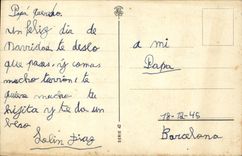 Papa querido.
un feliz dia de
Navidas te deslo
que pases, y comas
mucho torron, te
quiere mucho tu
hijita y te da un
beso
a mi
Papa
18-12-45
Barcelona